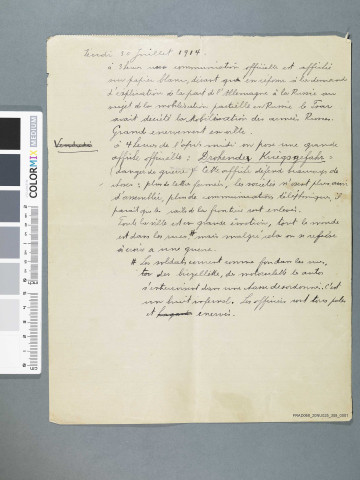 Jeudi 30 Juillet 1914.
à 3 heures une communication officielle est affichée
sur papier blanc, disant que en réponse à la demande
d'explication de la part de l'Allemagne à la Russie au
sujet de la mobilisation partielle en Russie le Tsar
avait décrété la Mobilisation des armées Russes.
Grand enervement en ville.
Vendredi
à 4 heures de l'après-midi on pose une grande
affiche officielle : Drohender Kriegsgefahr =
(danger de guerre) Cette affiche défend beaucoup de
choses : plus de lettres fermées, les sociétés n'osent plus
d'assemblée, plus de communications téléphoniques, il
paraît que les rails de la frontière sont enlevés.
Toute la ville est en grande émotion, tout le monde
est dans les rues # mais malgré cela on se refuse
à croire à une guerre.
# Les soldats courent comme fou dans les rues,
des bicyclettes, de motocyclettes et autos
s'entrecroisent dans une chasse desordonnée. C'est
un bruit infernal. Les officiers sont très pales
et enervés.
COLORMIX MEDIUM